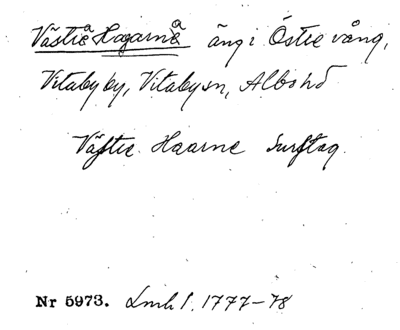 Västra Hagarna äng i Östre vång,
Vitaby by, Vitaby sn, Albo hd
Västre Haarne
Nr 5973. Lmk 1. 1777-78